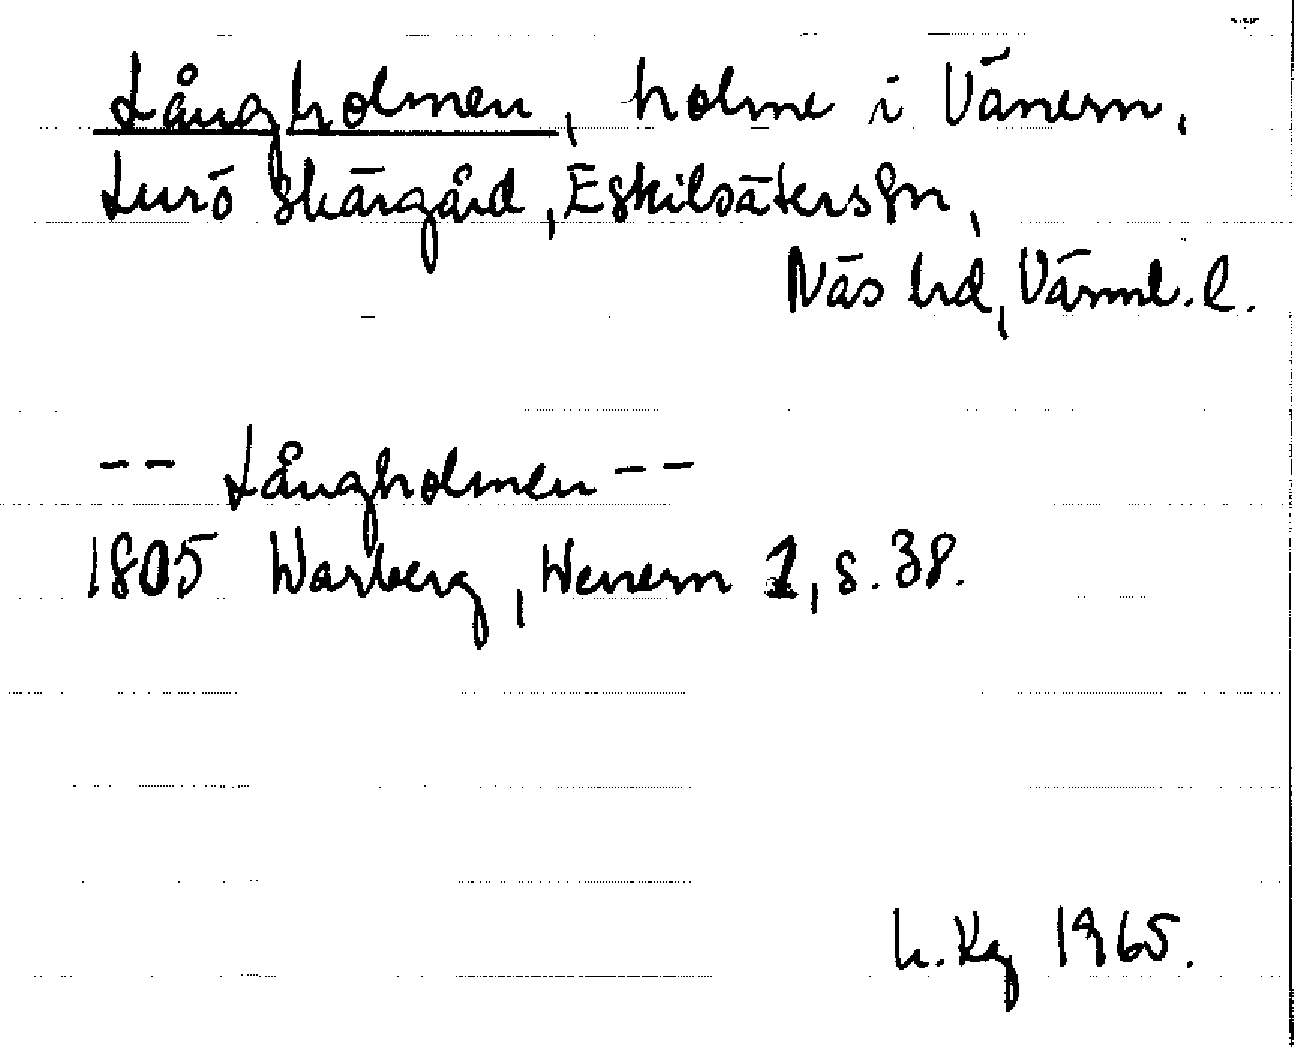 Långholmen, holme i Vänern,
Lurö skärgård, Eskilsäters sn,
Näs hd, Värml. l.
-- Långholmen --
1805 Warberg, Wenern 1, s. 38.
h. Kg 1965.